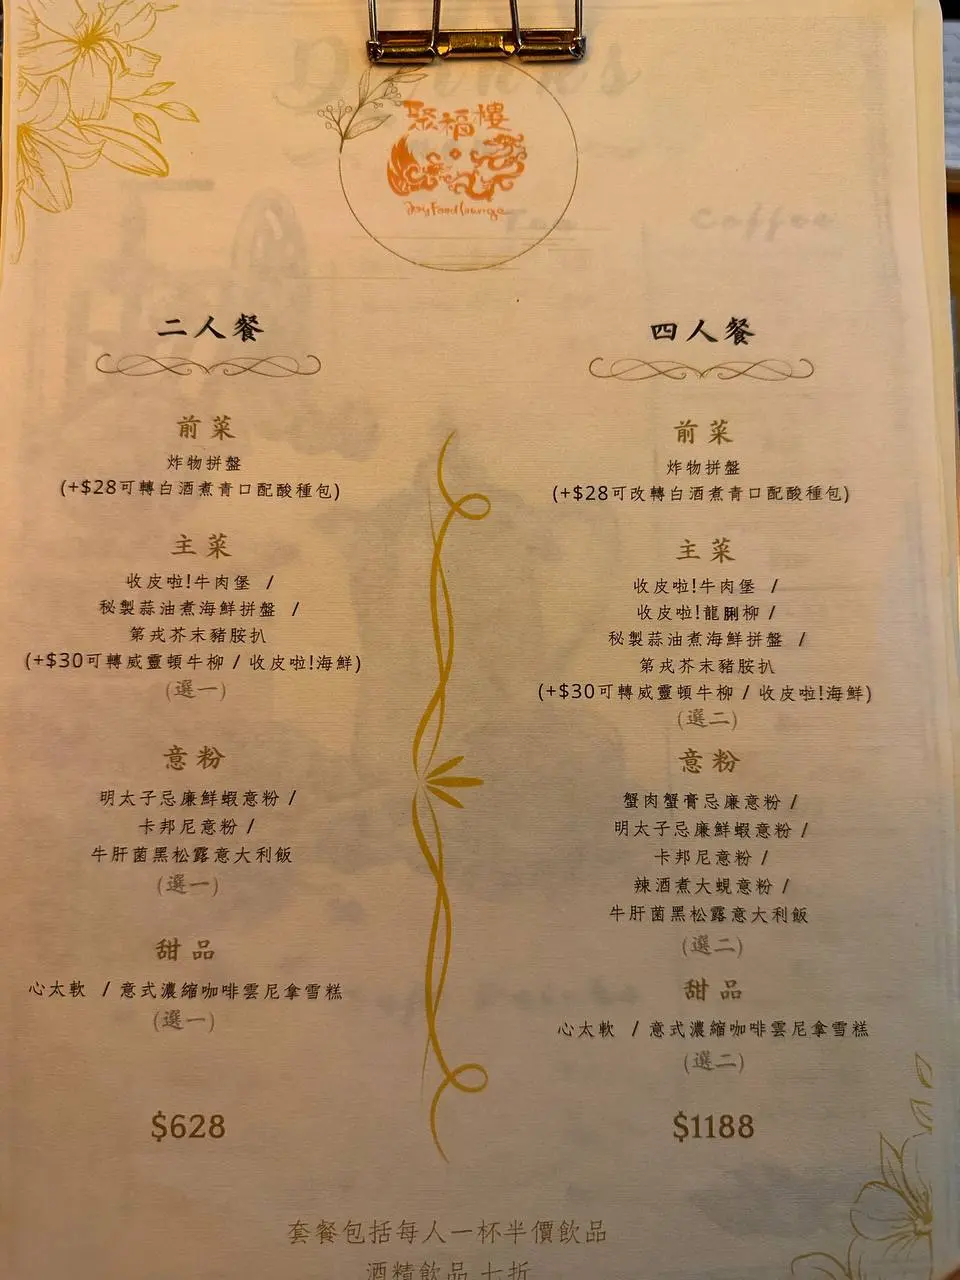 聚福樓
Joy Food Lounge
二人餐
前菜
炸物拼盤
(+$28可轉白酒煮青口配酸種包)
主菜
收皮啦!牛肉堡 /
秘製蒜油煮海鮮拼盤 /
第戎芥末豬胺扒
(+$30可轉威靈頓牛柳 / 收皮啦!海鮮)
(選一)
意粉
明太子忌廉鮮蝦意粉 /
卡邦尼意粉 /
牛肝菌黑松露意大利飯
(選一)
甜品
心太軟 / 意式濃縮咖啡雲尼拿雪糕
(選一)
$628
四人餐
前菜
炸物拼盤
(+$28可改轉白酒煮青口配酸種包)
主菜
收皮啦!牛肉堡 /
收皮啦!龍脷柳 /
秘製蒜油煮海鮮拼盤 /
第戎芥末豬胺扒
(+$30可轉威靈頓牛柳 / 收皮啦!海鮮)
(選二)
意粉
蟹肉蟹膏忌廉意粉 /
明太子忌廉鮮蝦意粉 /
卡邦尼意粉 /
辣酒煮大蜆意粉 /
牛肝菌黑松露意大利飯
(選二)
甜品
心太軟 / 意式濃縮咖啡雲尼拿雪糕
(選二)
$1188
套餐包括每人一杯半價飲品
酒精飲品 七折
Tea
Coffee